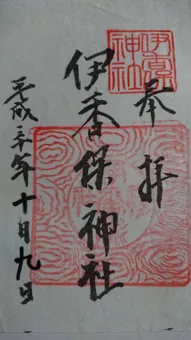 伊香保
神社
奉拝
伊香保神社
平成三十年十月九日